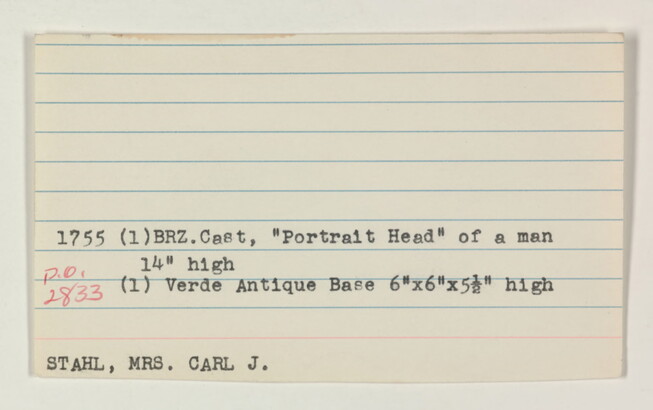 1755 (1)BRZ.Cast, "Portrait Head" of a man
14" high
P.O.
2833 (1) Verde Antique Base 6"x6"x5½" high
STAHL, MRS. CARL J.